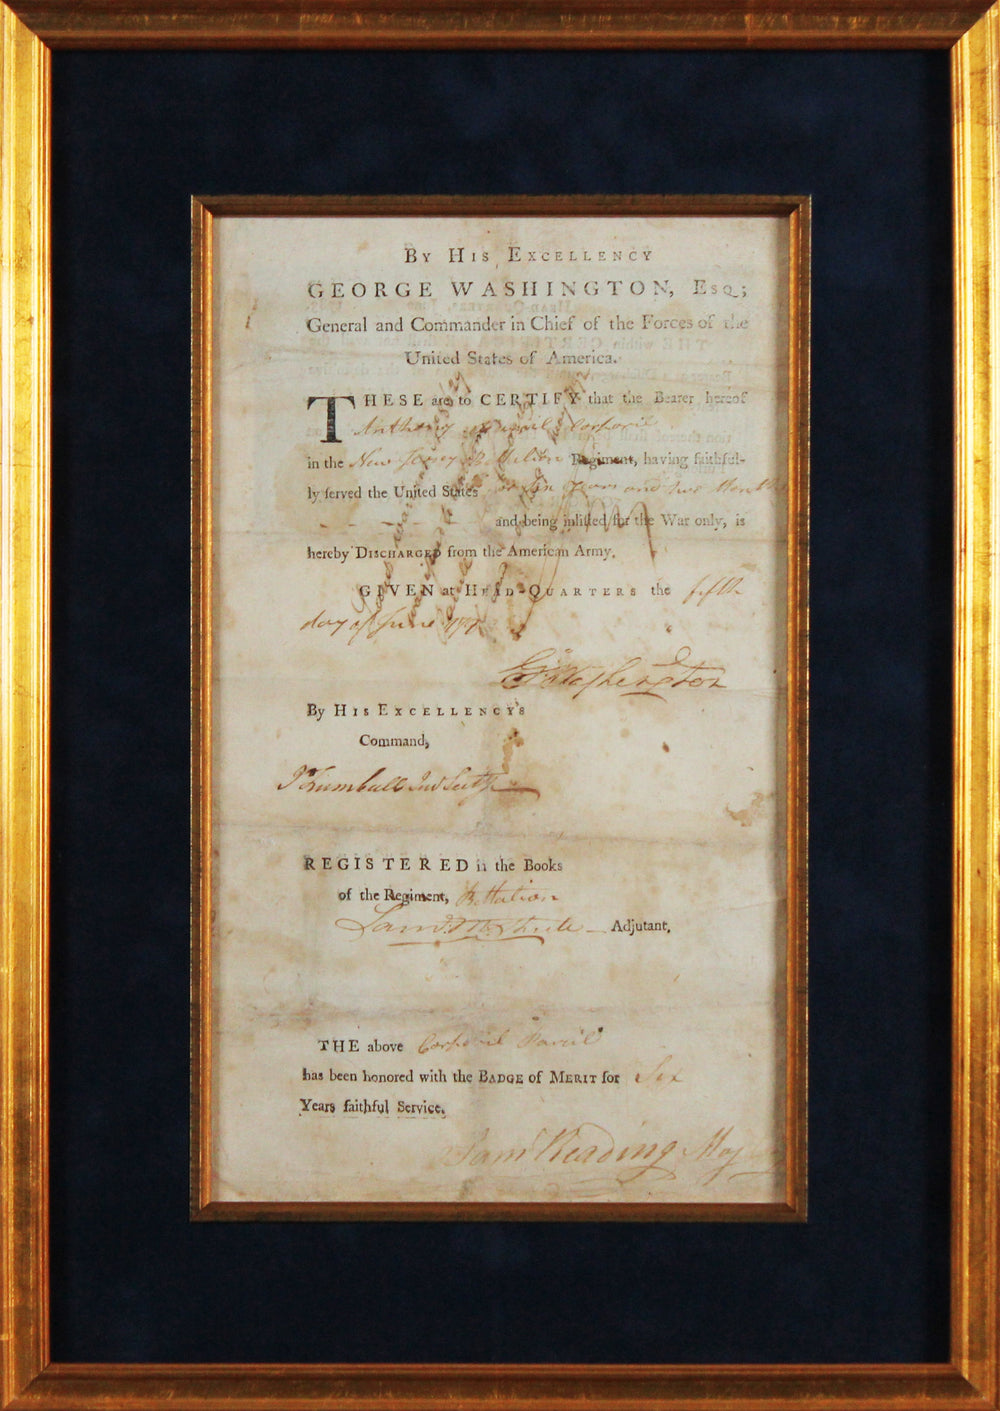 By His Excellency
GEORGE WASHINGTON, Esq;
General and Commander in Chief of the Forces of the
United States of America.
THESE are to CERTIFY that the Bearer hereof
Anthony Corporil
in the New Jersey Battalion Regiment, having faithful-
ly served the United States for Six Years and two Months
and being inlisted for the War only, is
hereby DISCHARGED from the American Army.
GIVEN at HEAD-QUARTERS the fifth
day of June 1783
G Washington
By HIS EXCELLENCY'S
Command,
J Trumbull Jun
REGISTERED in the Books
of the Regiment, Battalion
Adjutant,
THE above Corporil
has been honored with the BADGE of MERIT for Six
Years faithful Service.
Sam Reading Maj